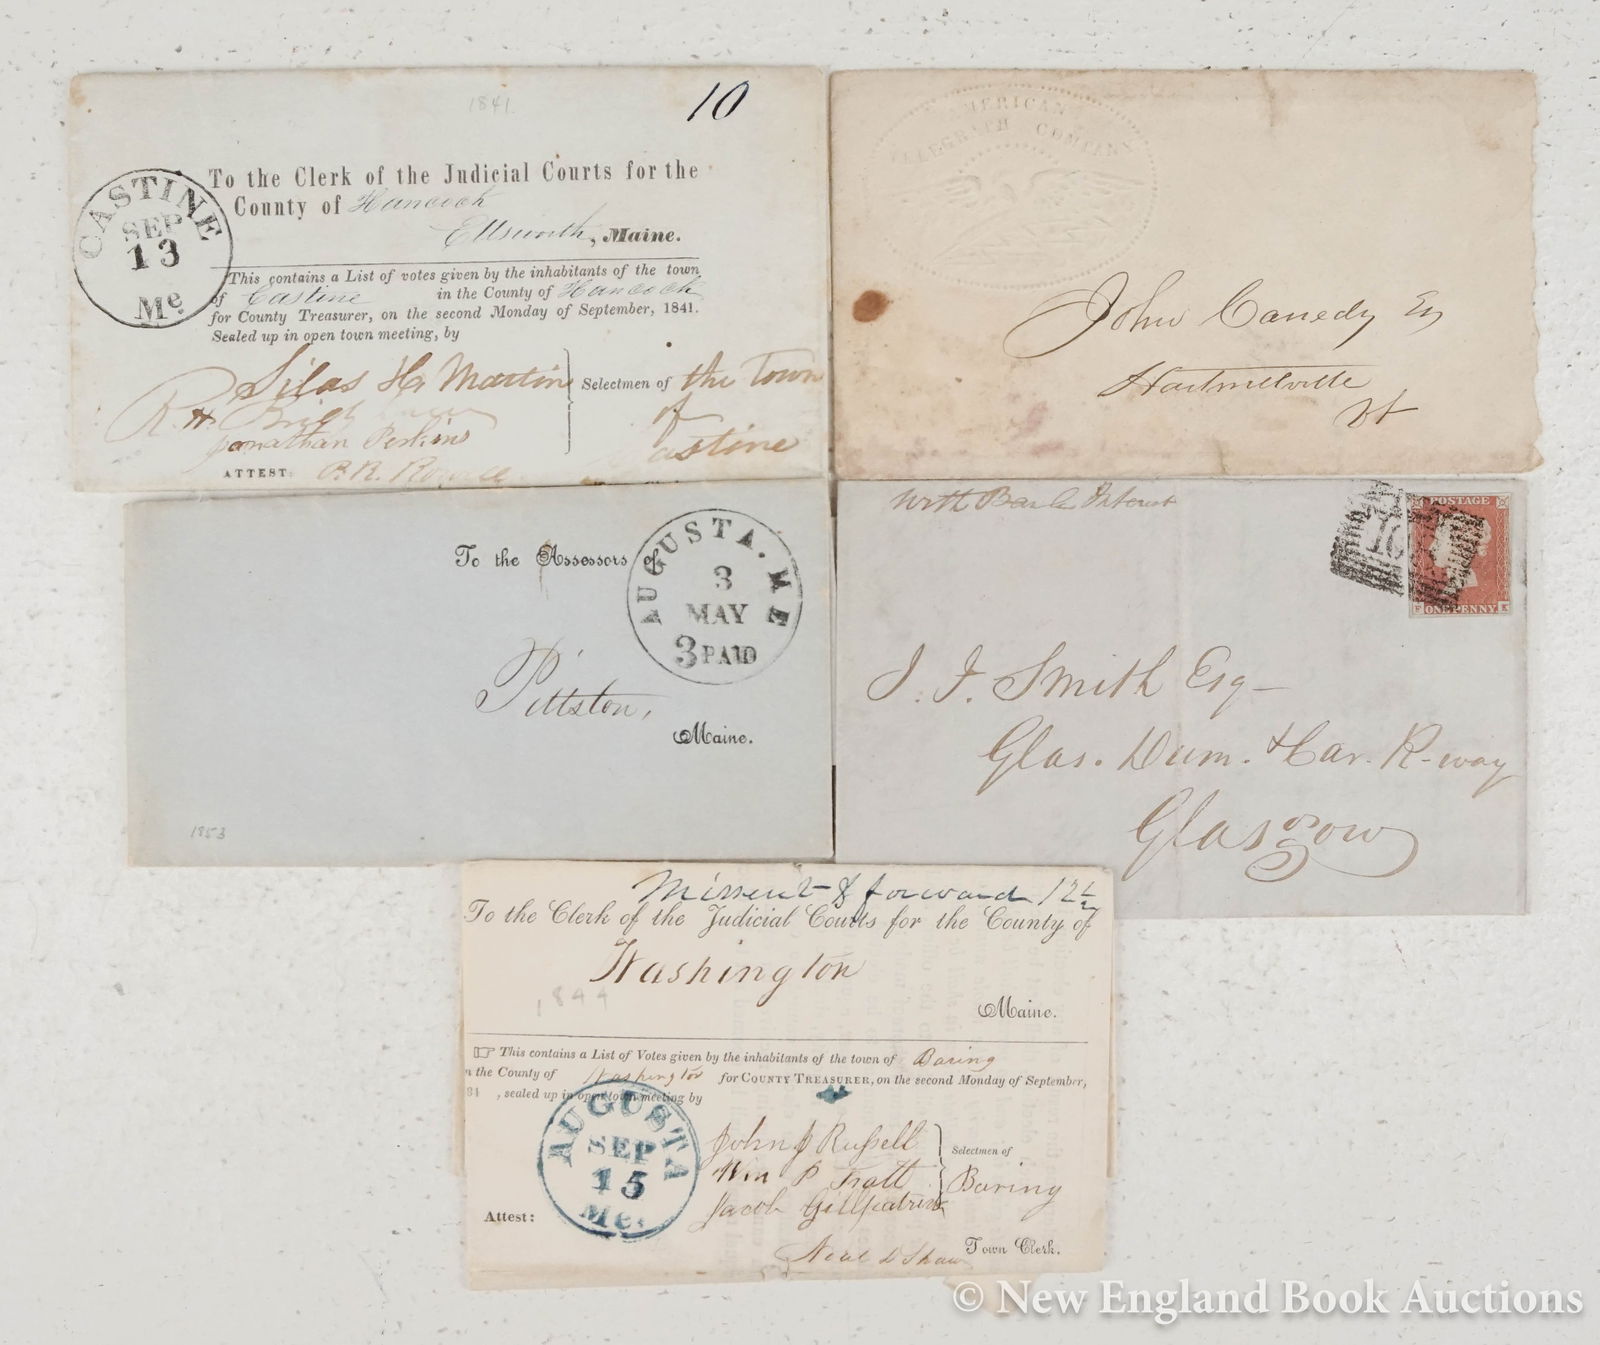 1841
10
To the Clerk of the Judicial Courts for the
County of Hancock
Ellsworth, Maine.
CASTINE
SEP
13
Me
This contains a List of votes given by the inhabitants of the town
of Castine in the County of Hancock
for County Treasurer, on the second Monday of September, 1841.
Sealed up in open town meeting, by
Silas H. Martin
R. H.
Jonathan Perkins
Selectmen of the Town
of
Castine
ATTEST:
AMERICAN
TELEGRAPH COMPANY
John Canedy Esq
Vt
To the Assessors of
AUGUSTA. ME
3
MAY
3 PAID
Pittston,
Maine.
1853
With
16
POSTAGE
ONE PENNY
F K
J. J. Smith Esq
Glas. Dum. & Car. R-way
Glasgow
Missent & forward 12½
To the Clerk of the Judicial Courts for the County of
Washington
1844
Maine.
This contains a List of Votes given by the inhabitants of the town of Baring
n the County of Washington for COUNTY TREASURER, on the second Monday of September,
84 , sealed up in open town meeting by
AUGUSTA
SEP
15
Me.
John J Russell
Wm P
Jacob Gillpatrick
Selectmen of
Baring
Attest:
Neal D Shaw Town Clerk.
© New England Book Auctions